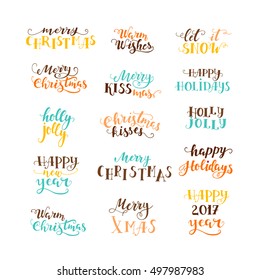 merry
CHRISTMAS
Warm
Wishes
let it
SNOW
Merry
Christmas
Merry
KISSmas
HAPPY
HOLIDAYS
holly
jolly
Christmas
kisses
HOLLY
JOLLY
HAPPY
new
year
Merry
CHRISTMAS
happy
Holidays
Warm
Christmas
Merry
XMAS
HAPPY
2017
year
shutterstock.com · 497987983